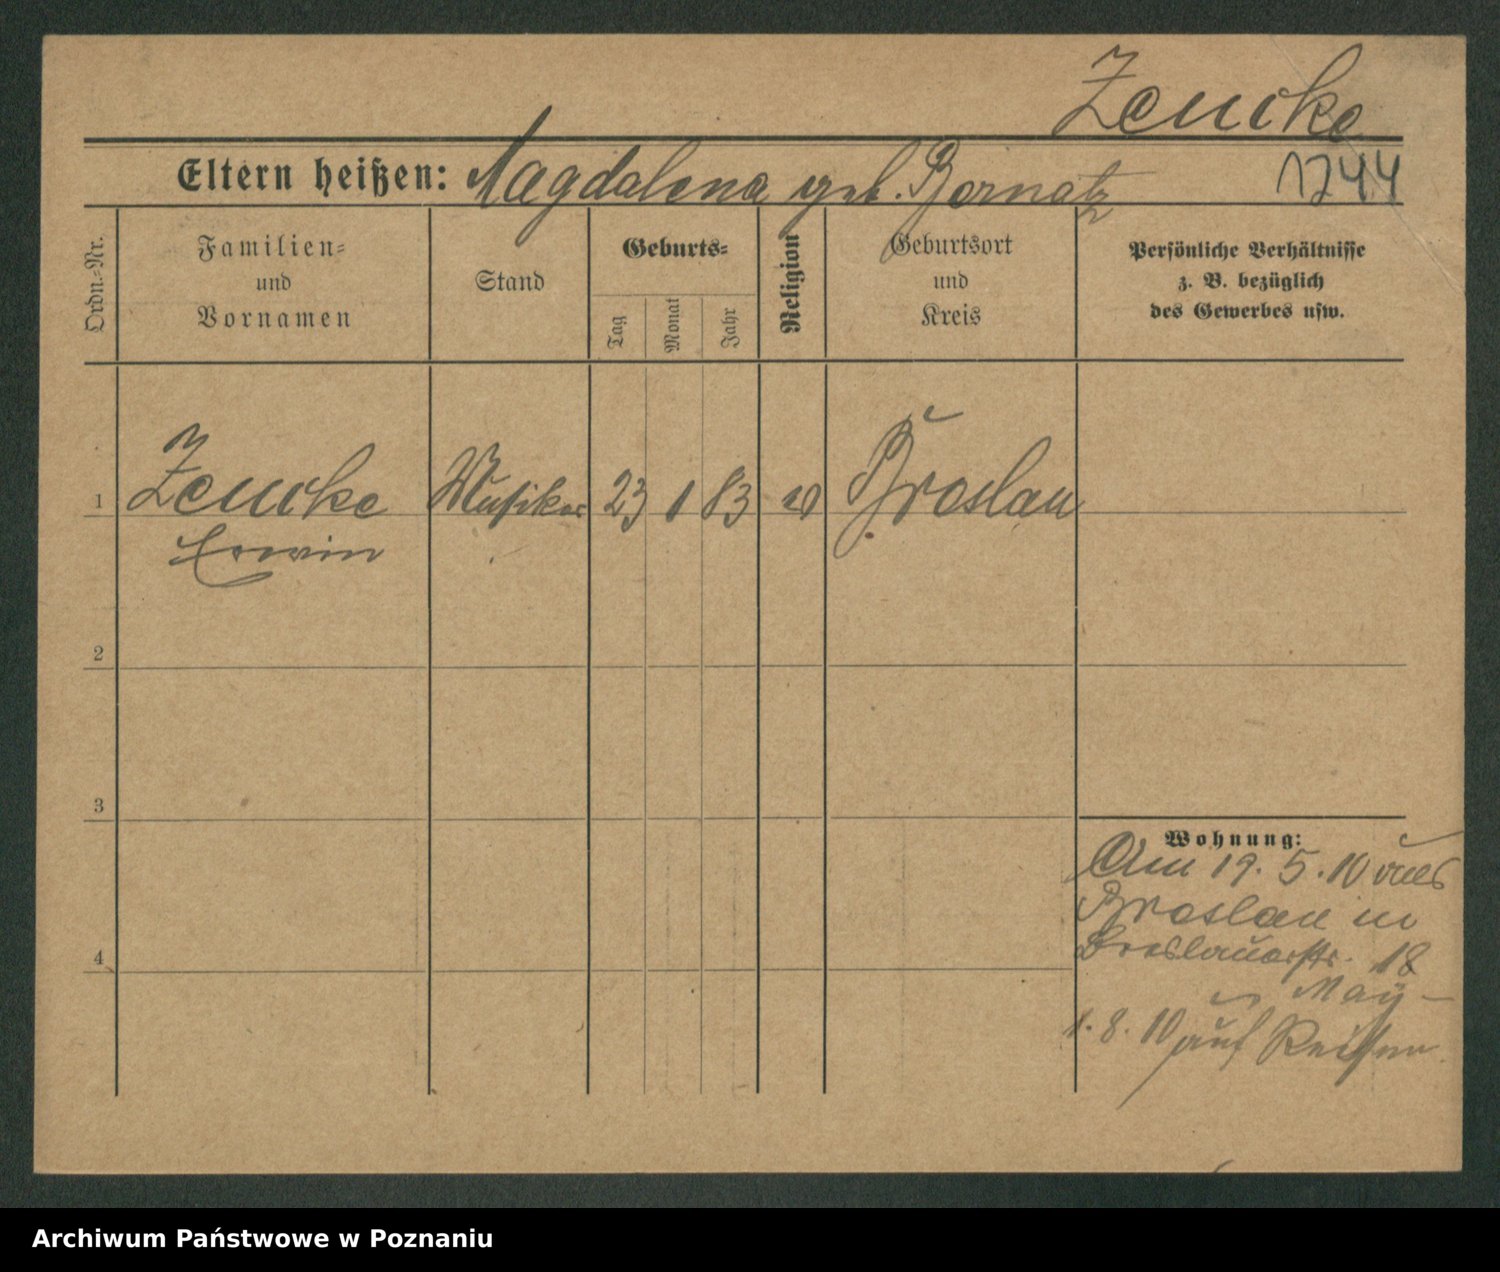 Zencke
Eltern heißen: Magdalena geb. Bernatz
1744
Ordn.-Nr.
Familien-
und
Vornamen
Stand
Geburts-
Tag
Monat
Jahr
Religion
Geburtsort
und
Kreis
Persönliche Verhältnisse
z. B. bezüglich
des Gewerbes usw.
1 Zencke Musiker 23 1 83 Breslau
Erwin
2
3
4
Wohnung:
Am 19. 5. 10 aus
Breslau in
Breslauerstr. 18
May
1. 8. 10 auf Reisen
Archiwum Państwowe w Poznaniu